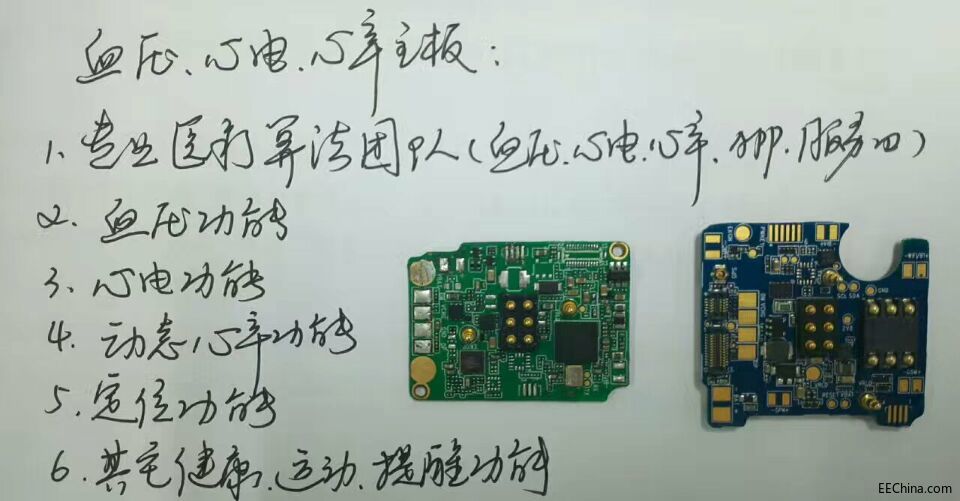 血压、心电、心率主板：
1、专业医疗算法团队（血压、心电、心率、APP、服务口）
2、血压功能
3、心电功能
4、动态心率功能
5、定位功能
6、其它健康、运动、提醒功能
GPS
SCL SDA
GND
RESET
EEChina.com